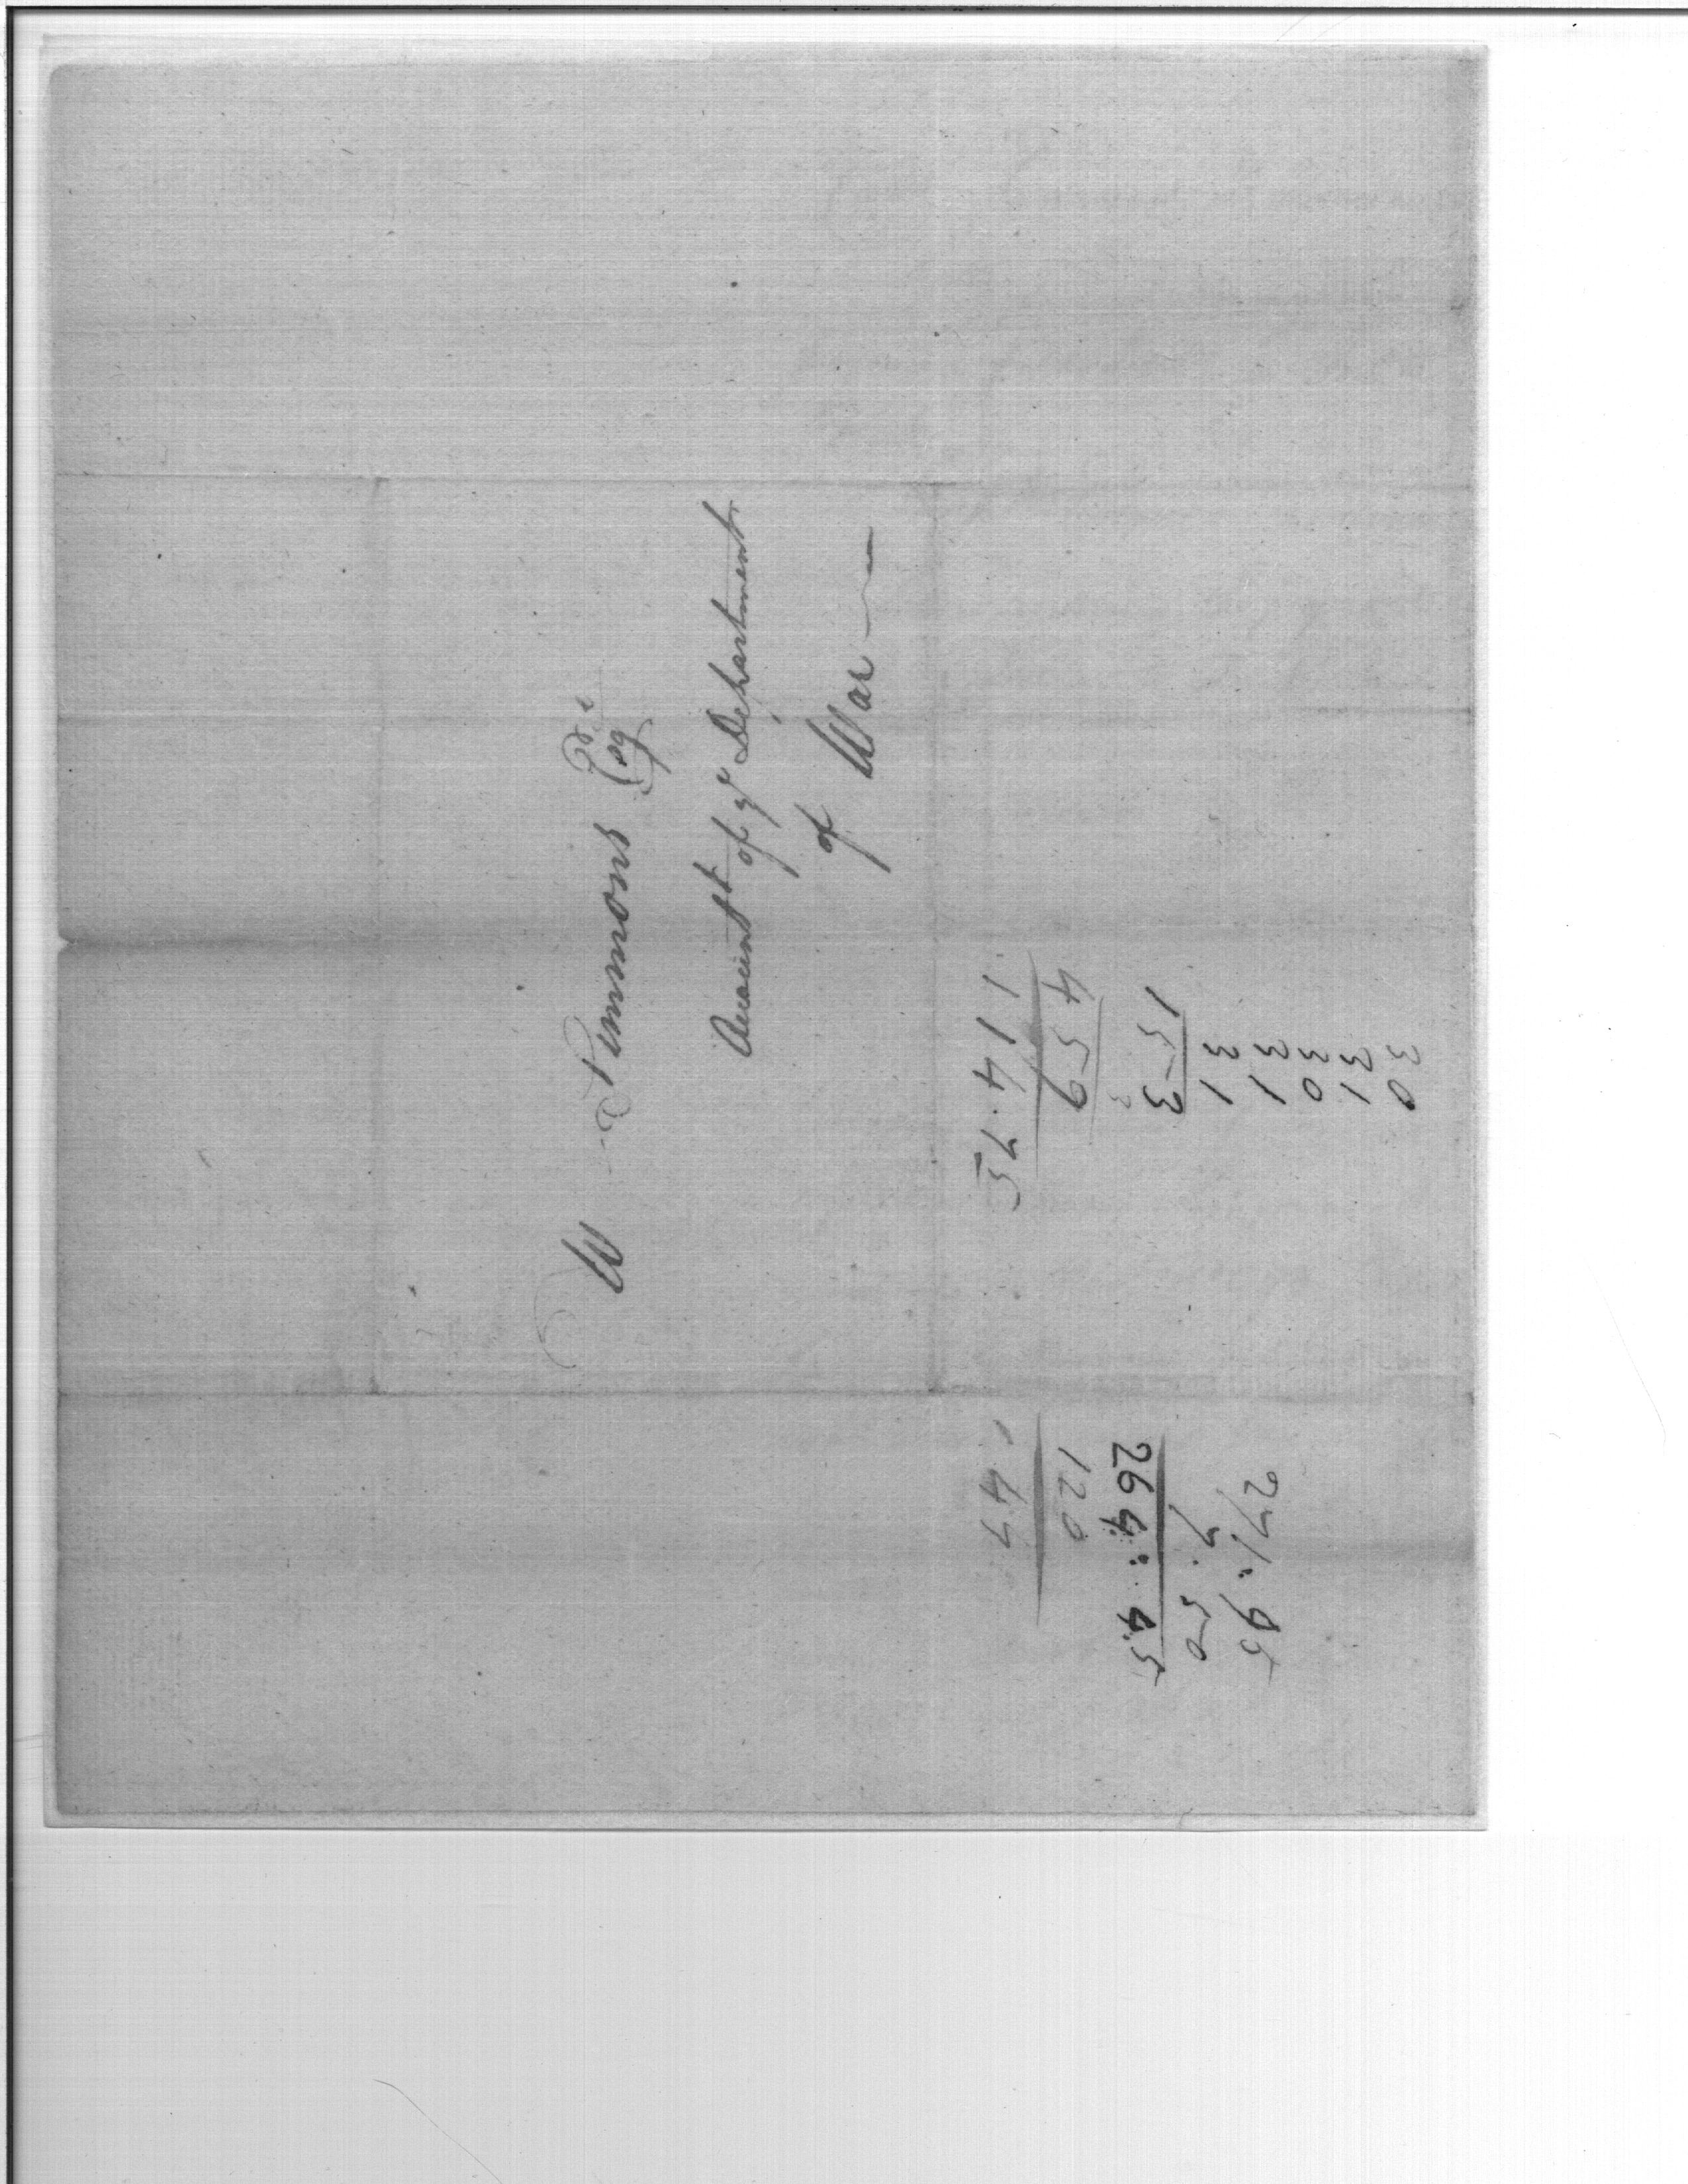 W Simmons Esqr
Accountt of ye Department
of War
30
31
30
31
31
153
3
459
114.75
271:95
7.50
264:45
120
144